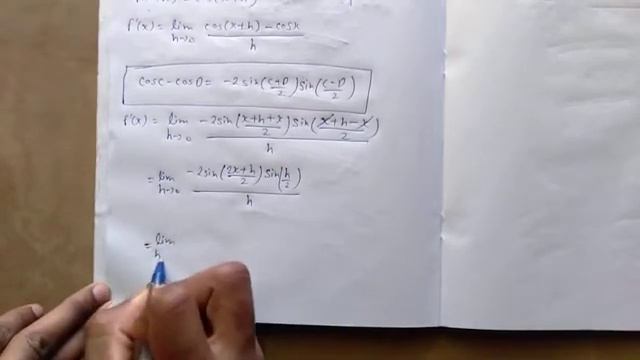 f'(x) = lim h→0 cos(x+h) - cosx / h
cosC - cosD = -2 sin(C+D/2) sin(C-D/2)
f'(x) = lim h→0 -2sin(x+h+x/2) sin(x+h-x/2) / h
= lim h→0 -2sin(2x+h/2) sin(h/2) / h
= lim h